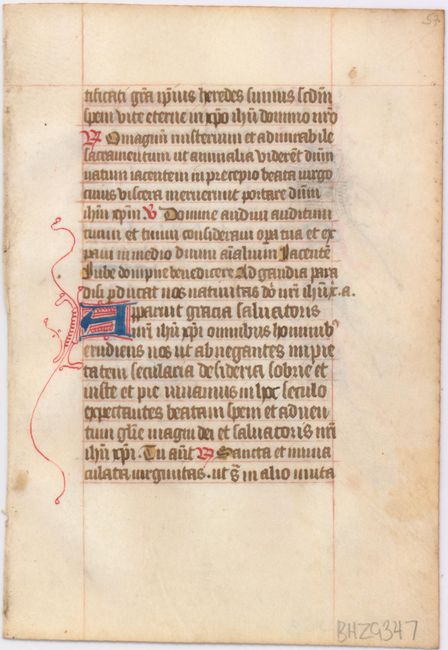 57
tificati gr̄a ip̄ius heredes sumus scd̄m
spem vite eterne in xp̄o ih̄u domino nr̄o
R O magnum misterium et admirabile
sacramentum ut animalia viderēt dn̄m
natum iacentem in presepio beata virgo
cuius viscera meruerunt portare dn̄m
ih̄m xp̄m V Domine audivi auditum
tuum et timui consideravi opa tua et ex
pavi in medio duum aīalium Jacentē
Jube dompne benedicere Ad gaudia para
disi pducat nos nativitas dn̄i nr̄i ih̄u x̄. a.
Apparuit gracia salvatoris
nr̄i ih̄u xp̄i omnibus hominib
erudiens nos ut abnegantes impie
tatem secularia desideria sobrie et
iuste et pie vivamus in hoc seculo
expectantes beatam spem et adven
tum glīe magni dei et salvatoris nr̄i
ih̄u xp̄i. Tu aūt R Sancta et imma
culata virginitas. ut s̄ in alio invita
BHZ9347